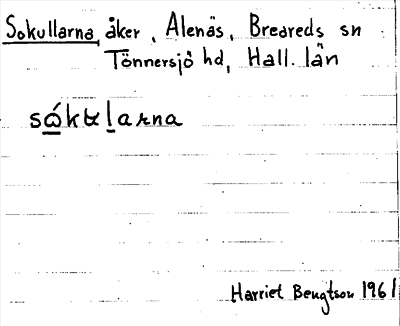 Sokullarna, åker, Alenäs, Breareds sn
Tönnersjö hd, Hall. län
Harriet Bengtson 1961